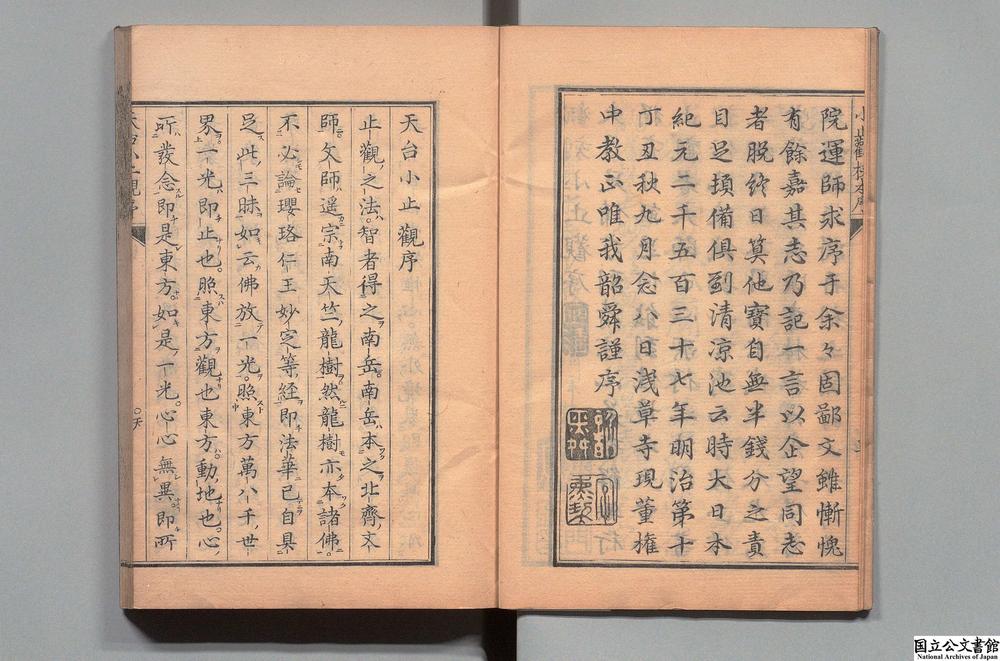 院運師求序于余々固鄙文雖慚愧
有餘嘉其志乃記一言以企望同志
者脫終日算他寶自無半錢分之責
目足湏備俱到清凉池云時大日本
紀元二千五百三十七年明治第十
丁丑秋九月念八日浅草寺現董権
中教正唯我韶舜謹序
天台小止觀序
止觀之法。智者得之南岳南岳本之北齊文
師文師遥宗南天竺龍樹然龍樹亦本諸佛。
不必論瓔珞仁王妙定等経即法華已自具
足此三昧如云佛放一光。照東方萬八千世
界一光即止也。照東方觀也東方動地也。心
所發念即是東方。如是一光。心心無異即所
天台小止觀序
○天
国立公文書館
National Archives of Japan